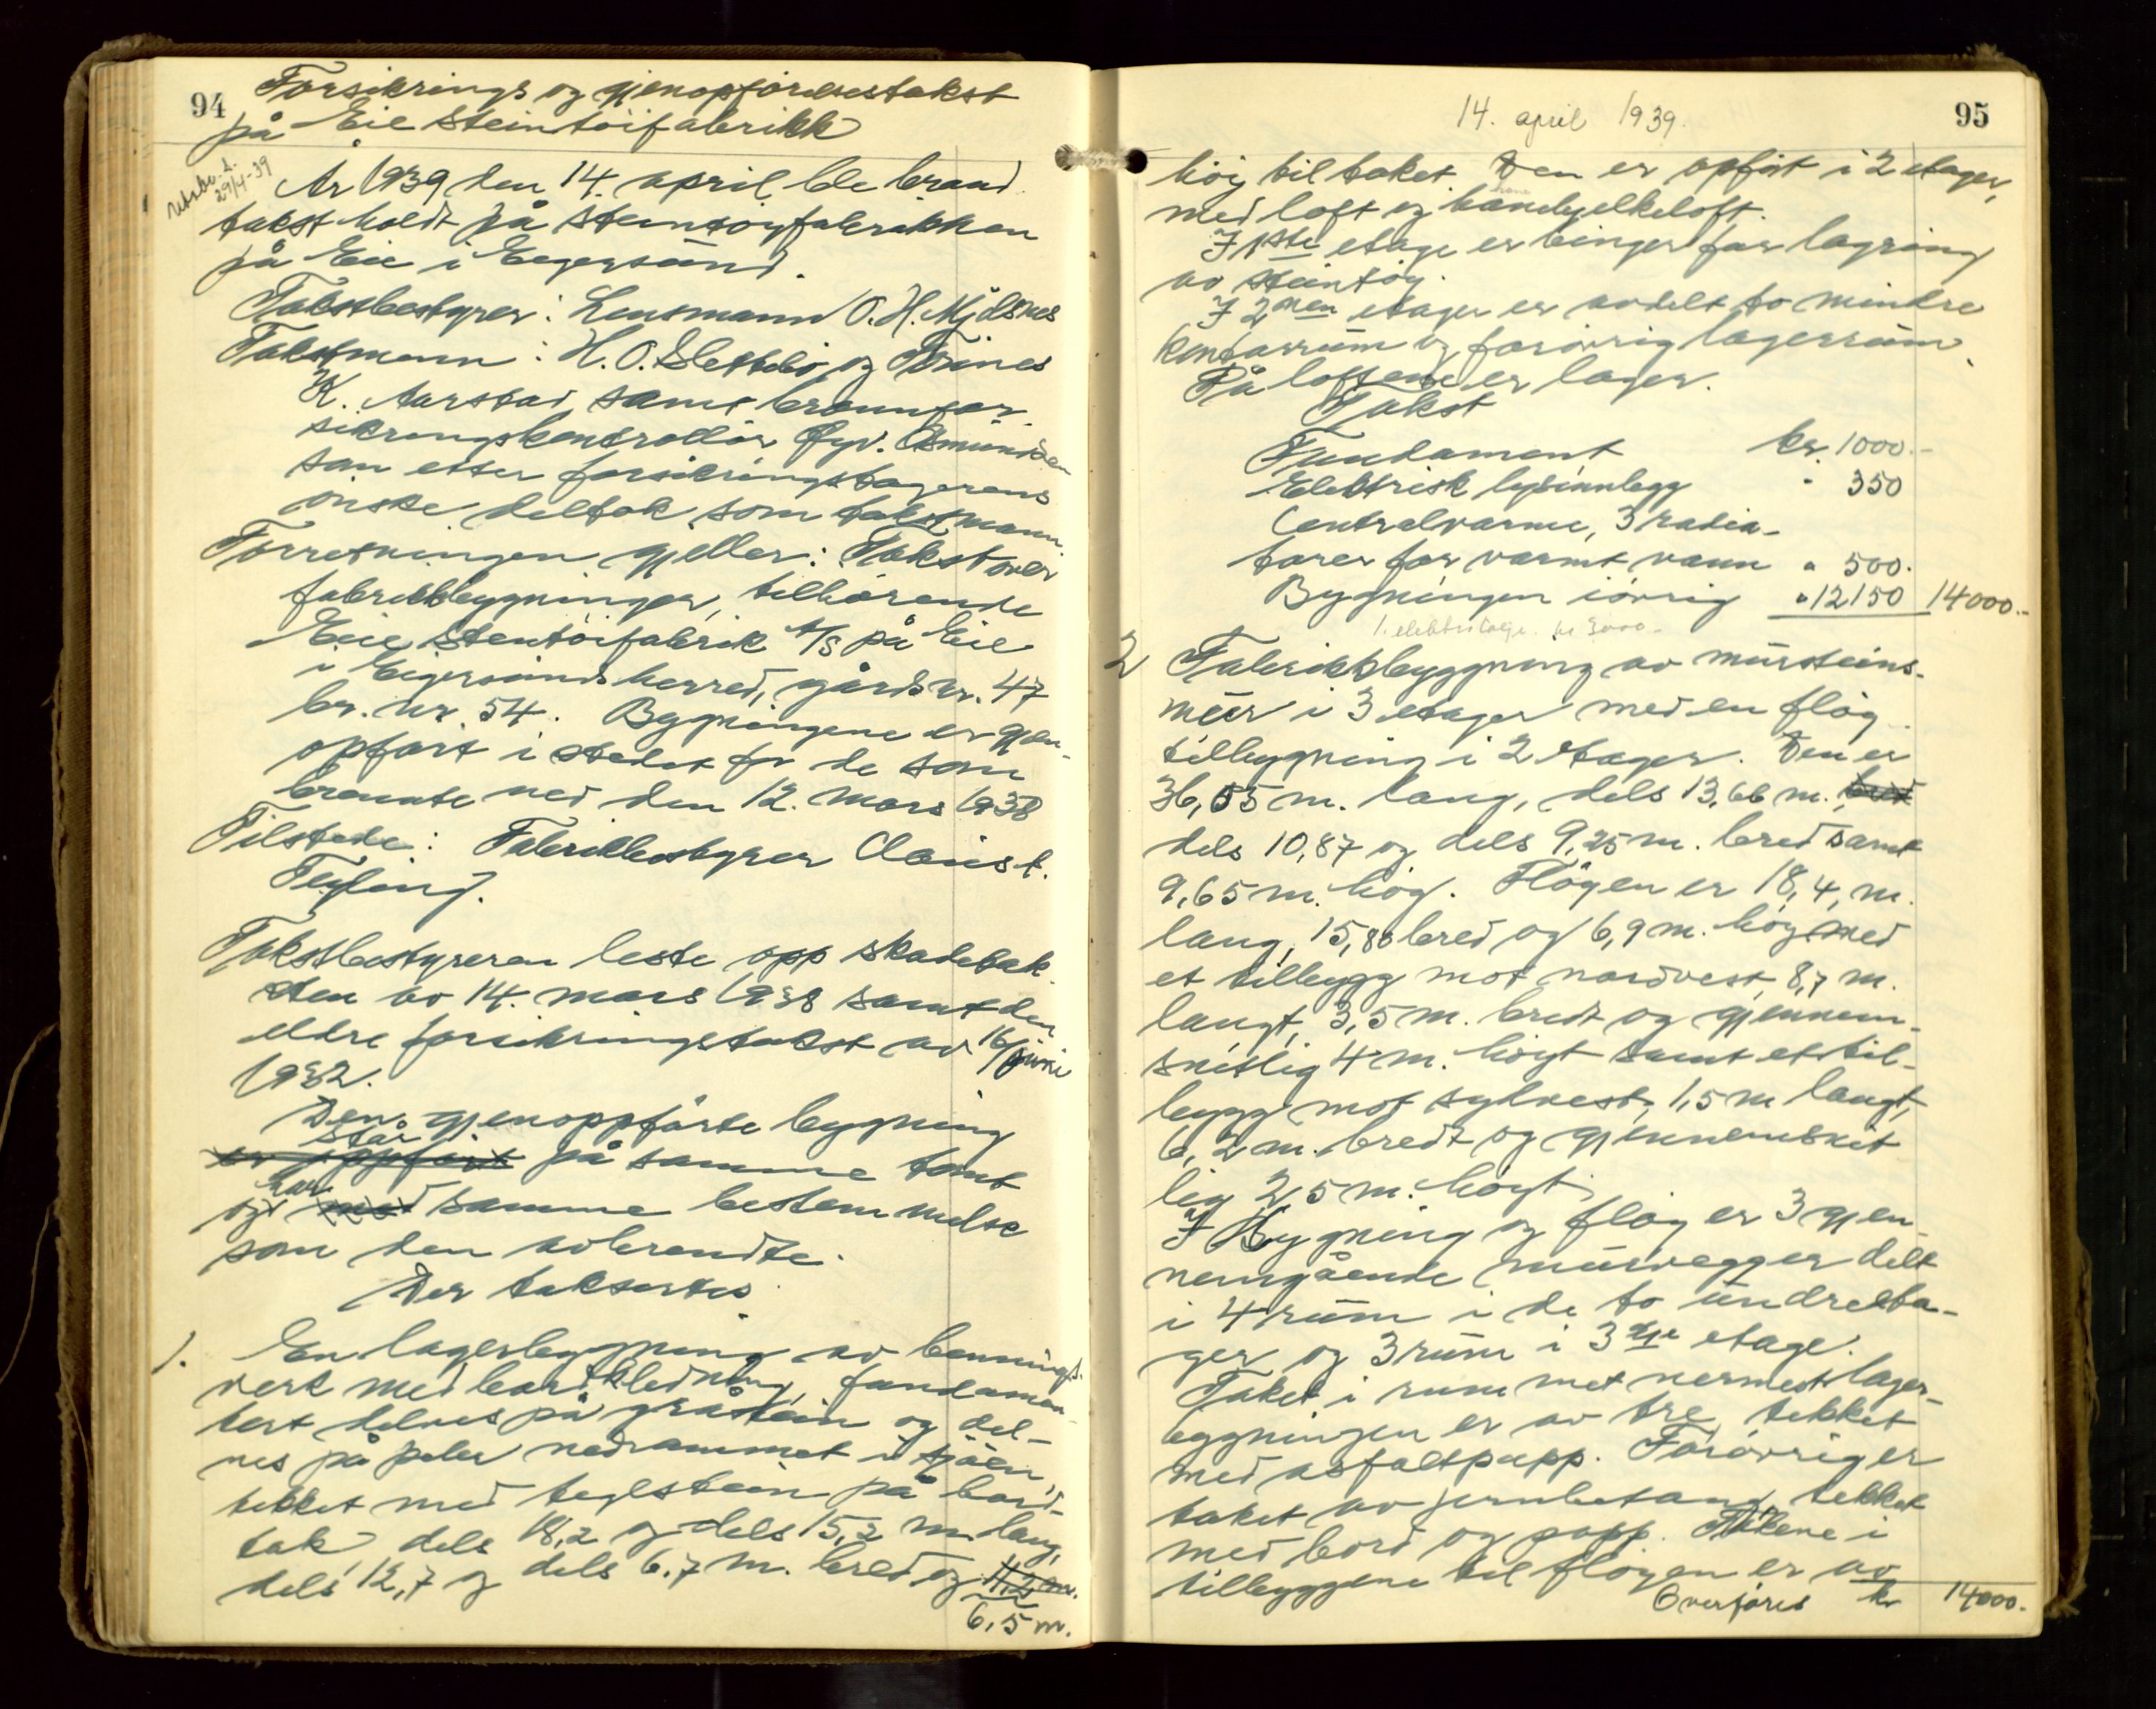 94
Forsikrings og gjenopførelsestakst
på Eie Steintøifabrikk
29/4-39
År 1939 den 14. april ble brand
takst holdt på steintøyfabrikken
på Eie i Egersund.
Takstbestyrer: Lensmann O. H. Mjølsnes
Takstmenn: H. O. Slettebø og Trines
K. Aarstad samt brannfor
sikringskontrollør Øyv. Asmundsen
som etter forsikringstagerens
ønske deltok som takstmann.
Forretningen gjeller: Takst over
fabrikkbygninger, tilhørende
Eie stentøifabrik A/S på Eie
i Eigersunds herred, gårds nr. 47
br. nr. 54. Bygningene er gjen-
opført i stedet for de som
brennte ned den 12. mars 1938
Tilstede: Fabrikkbestyrer Claus t.
Feyling.
Takstbestyreren leste opp skadetak
sten av 14. mars 1938 samt den
eldre forsikringstakst av 16/juni
1932.
Den gjenoppførte bygning
står
er oppført på samme tomt
har
og med samme bestemmelse
som den avbrendte.
Der taksertes
1. En lagerbygning av bennings-
verk med bordkledning, fundamen-
tert delvis på gråstein og del-
vis på peler nedrammet i sjøen
tekket med teglstein på bord-
tak dels 18,2 og dels 15,2 m. lang,
dels 12,7 og dels 6.7 m. bred og 11,2 m.
6,5 m.
14. april 1939.
95
høy til taket. Den er opført i 2 etager,
med loft og hanebjelkeloft.
I 1ste etage er binger for lagring
av steintøy.
I 2nen etage er avdelt to mindre
kontorrum og forøvrig lagerrum
På loftene er lager.
Takst
Fundament kr. 1000.-
Elektrisk lysinnlegg " 350
Centralvarme, 3 radia-
torer for varmt vann " 500.
Bygningen iøvrig " 12150 14000.-
2 Fabrikkbyggning av mursteins-
mur i 3 etager med en fløy
tilbygning i 2 etager. Den er
36,55 m. lang, dels 13,66 m. bred
dels 10,87 og dels 9,25 m. bred samt
9,65 m. høg. Fløyen er 18,4, m.
lang, 15,88 bred og 6,9 m. høy med
et tilbygg mot nordvest, 8,7 m.
langt, 3,5 m. bredt og gjennem-
snitlig 4 m. høyt samt et til-
bygg mot sydvest, 1,5 m langt,
6,2 m. bredt og gjennemsnit
lig 2,5 m. høyt.
I Bygning og fløy er 3 gjen-
nemgående murvegger delt
i 4 rum i de to undre eta-
ger og 3 rum i 3dje etage.
Taket i rummet nermest lager-
bygningen er av tre, tekket
med asfaltpapp. Forøvrig er
taket av jernbetong tekket
med bord og papp. Takene i
tilbyggene til fløyen er av
Overføres kr 14000.-